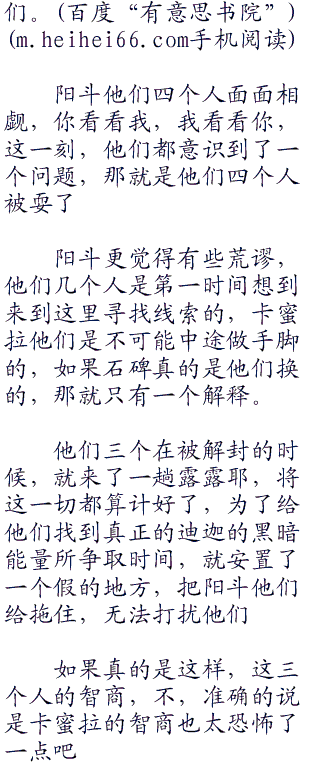 们。(百度“有意思书院”)
(m.heihei66.com手机阅读)
阳斗他们四个人面面相
觑，你看看我，我看看你，
这一刻，他们都意识到了一
个问题，那就是他们四个人
被耍了
阳斗更觉得有些荒谬，
他们几个人是第一时间想到
来到这里寻找线索的，卡蜜
拉他们是不可能中途做手脚
的，如果石碑真的是他们换
的，那就只有一个解释。
他们三个在被解封的时
候，就来了一趟露露耶，将
这一切都算计好了，为了给
他们找到真正的迪迦的黑暗
能量所争取时间，就安置了
一个假的地方，把阳斗他们
给拖住，无法打扰他们
如果真的是这样，这三
个人的智商，不，准确的说
是卡蜜拉的智商也太恐怖了
一点吧